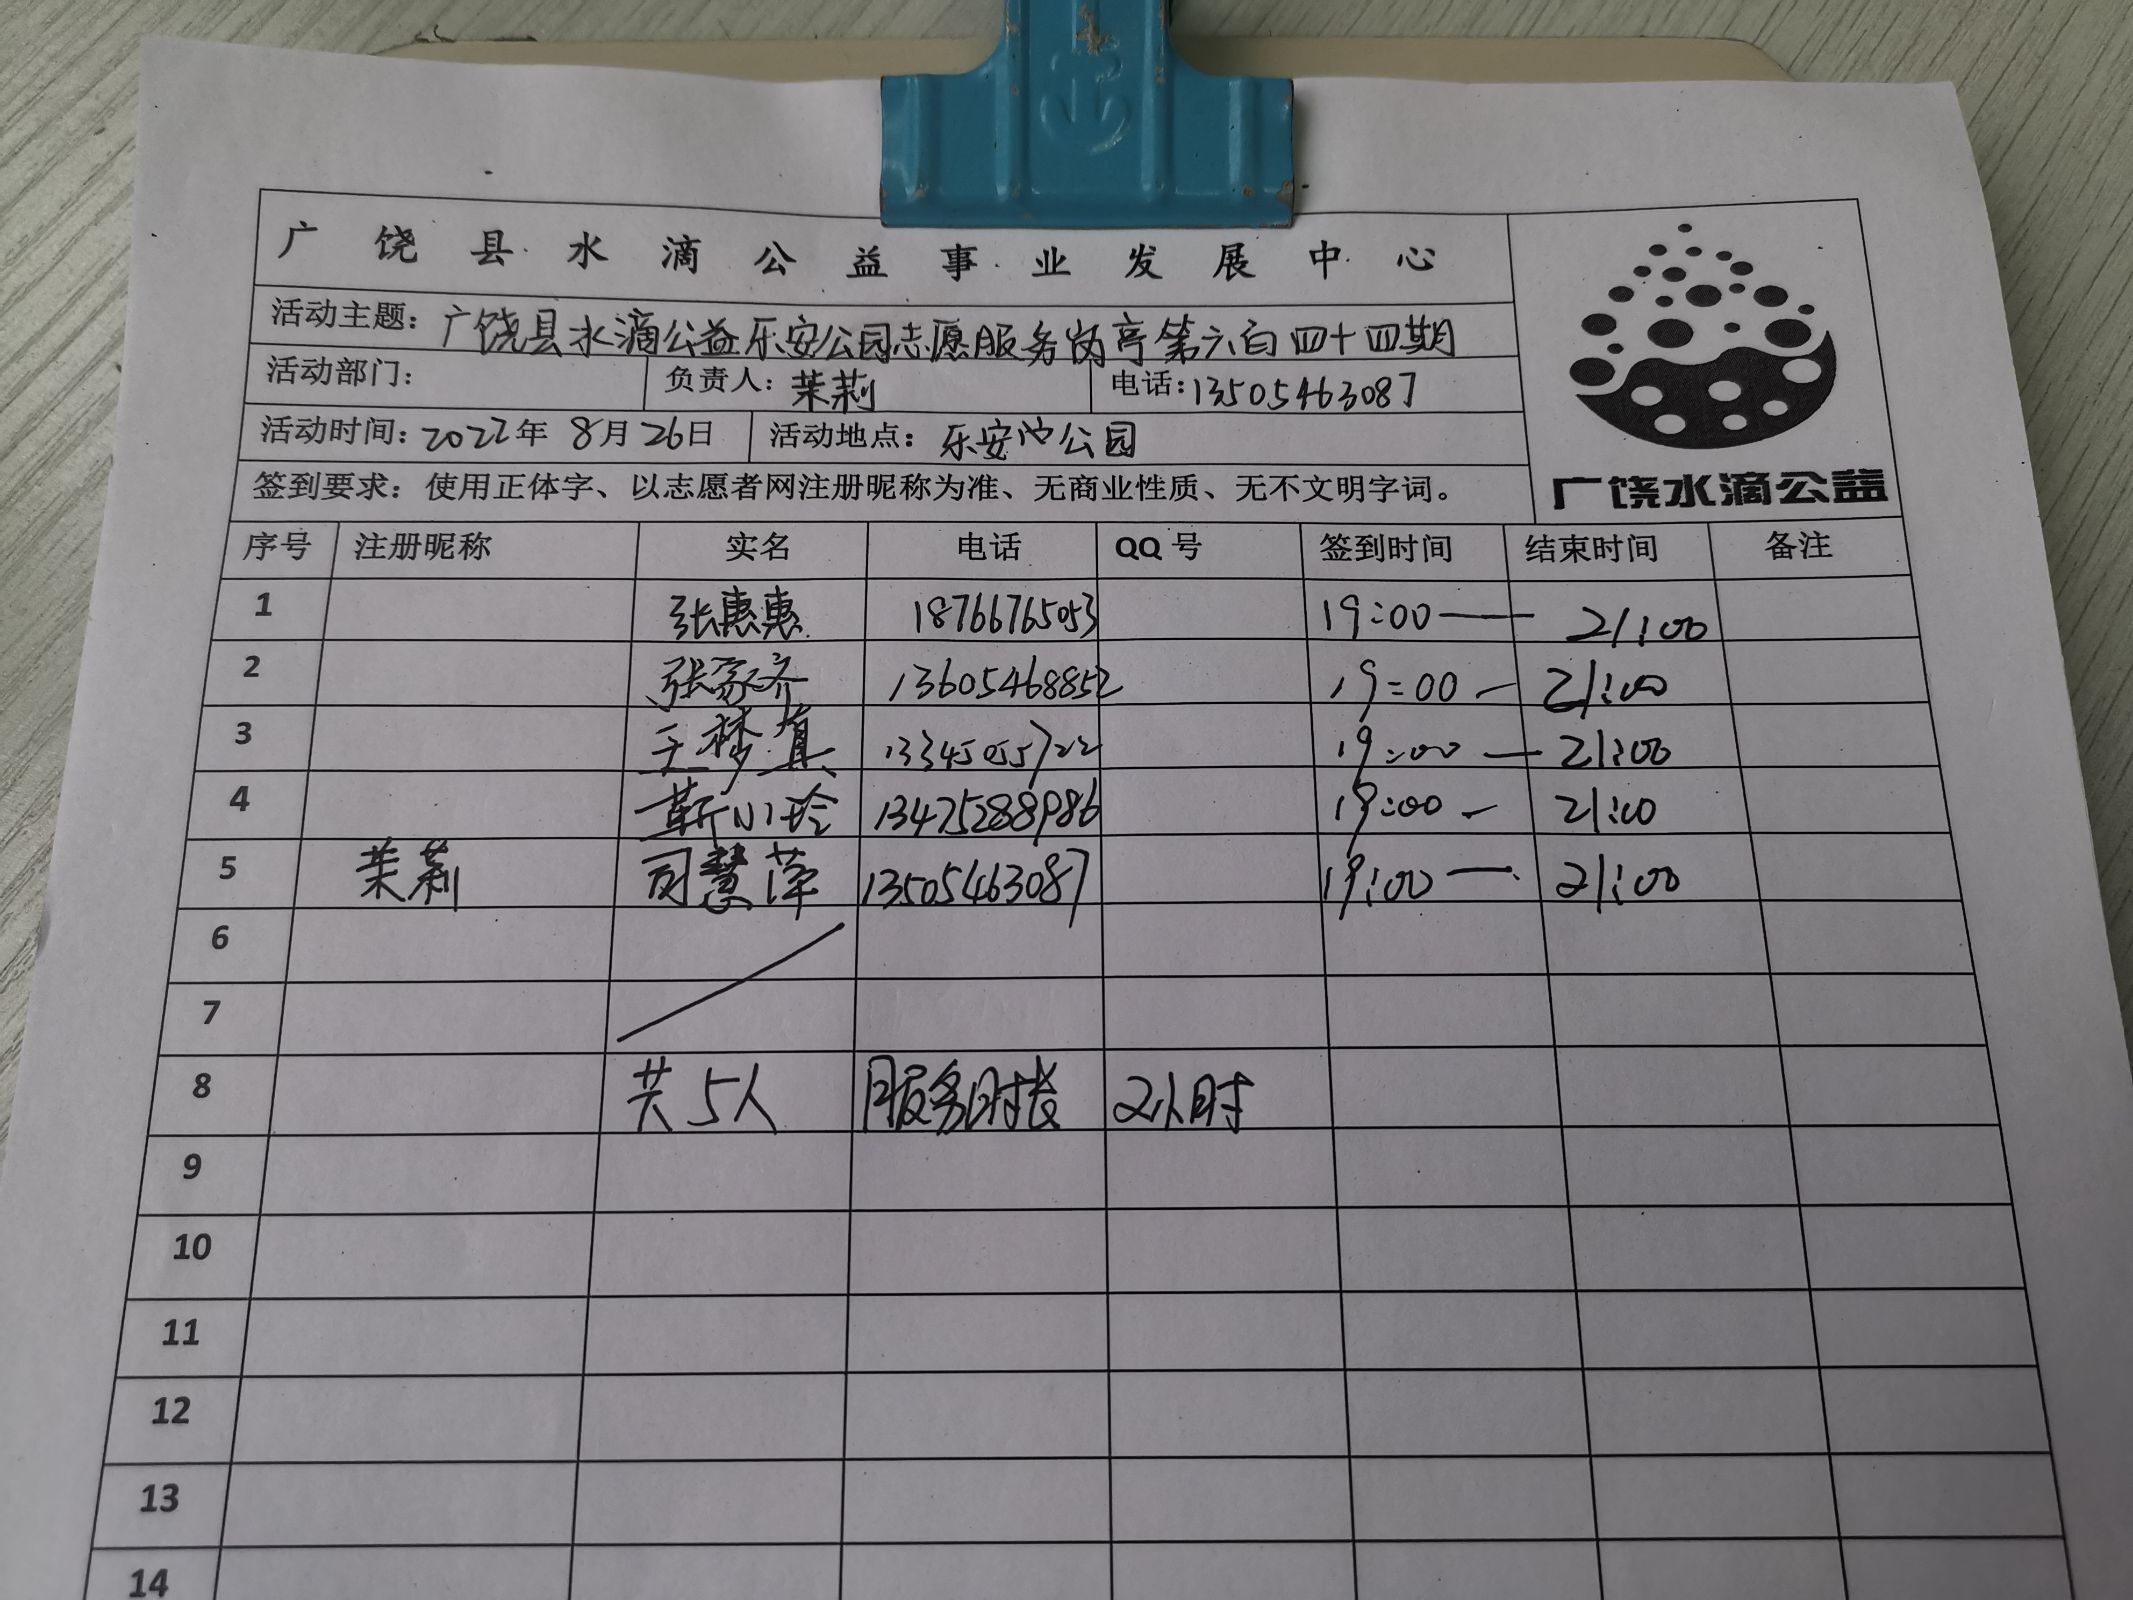 广饶县水滴公益事业发展中心
活动主题：广饶县水滴公益乐安公园志愿服务岗亭第六百四十四期
活动部门： 负责人：茉莉 电话：13505463087
活动时间：2022年 8月26日 活动地点：乐安公园
签到要求：使用正体字、以志愿者网注册昵称为准、无商业性质、无不文明字词。
广饶水滴公益
序号 注册昵称 实名 电话 QQ号 签到时间 结束时间 备注
1 张惠惠 18766765053 19:00—21:00
2 张家齐 13605468852 19:00—21:00
3 王梦真 13345055722 19:00—21:00
4 靳小玲 13475288986 19:00—21:00
5 茉莉 司慧萍 13505463087 19:00—21:00
6
7
8 共5人 服务时长 2小时
9
10
11
12
13
14